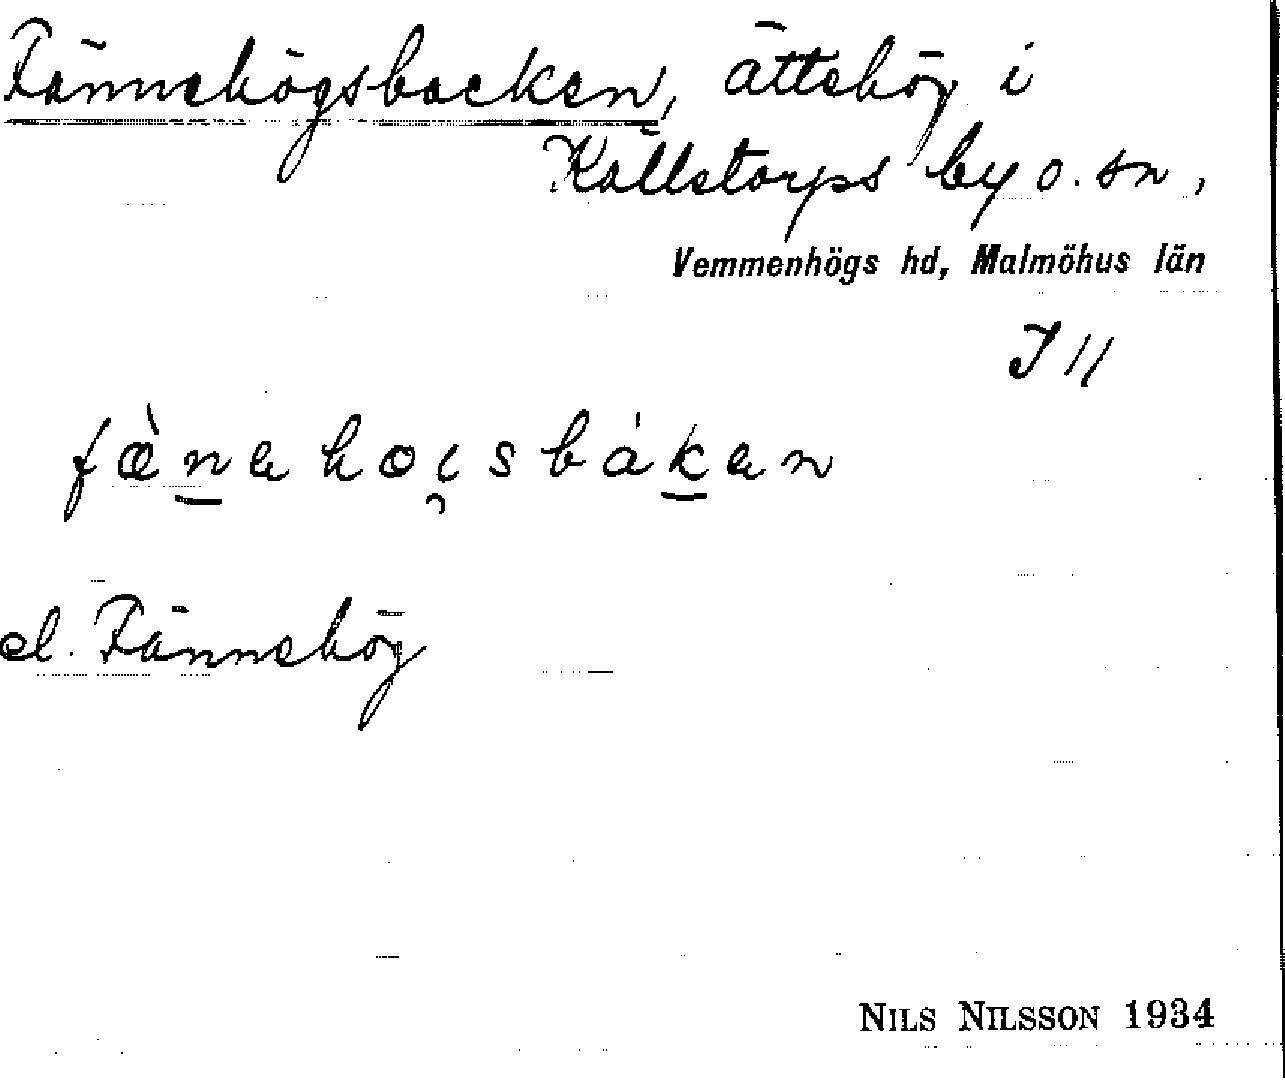 Fännehögsbacken, ättehög i
Källstorps by o. sn,
Vemmenhögs hd, Malmöhus län
J 11
fæ̀n̲ahoi̯sbák̲an
el. Fännehög
NILS NILSSON 1934